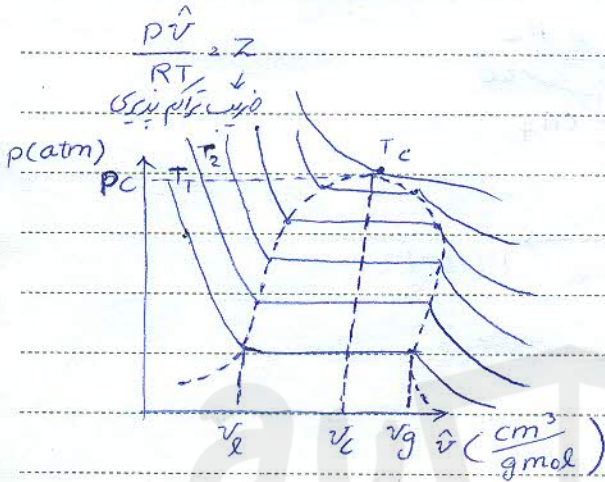 PV̂/RT = Z
ضریب تراکم پذیری
P(atm)
Pc
T₁
T₂
Tc
v_l
v_c
v_g
v̂ (cm³/gmol)